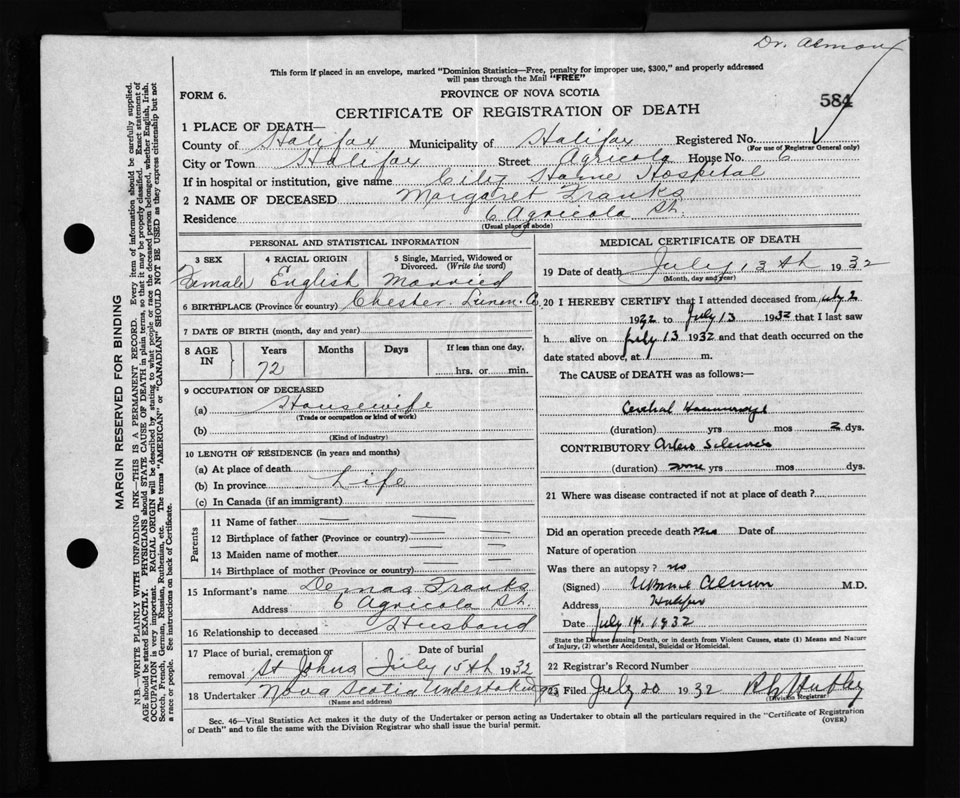 Dr. Almon
This form if placed in an envelope, marked "Dominion Statistics—Free, penalty for improper use, $300," and properly addressed
will pass through the Mail "FREE"
FORM 6.
PROVINCE OF NOVA SCOTIA
584
CERTIFICATE OF REGISTRATION OF DEATH
1 PLACE OF DEATH—
County of Halifax Municipality of Halifax Registered No.
(For use of Registrar General only)
City or Town Halifax Street Agricola House No. 6
If in hospital or institution, give name City Home Hospital
2 NAME OF DECEASED Margaret Franks
Residence 6 Agricola St.
(Usual place of abode)
PERSONAL AND STATISTICAL INFORMATION
3 SEX 4 RACIAL ORIGIN 5 Single, Married, Widowed or
Divorced. (Write the word)
Female English Married
6 BIRTHPLACE (Province or country) Chester. Lunen. Co.
7 DATE OF BIRTH (month, day and year)
8 AGE IN Years Months Days If less than one day,
72 hrs. or min.
9 OCCUPATION OF DECEASED
(a) Housewife
(Trade or occupation or kind of work)
(b)
(Kind of industry)
10 LENGTH OF RESIDENCE (in years and months)
(a) At place of death
(b) In province Life
(c) In Canada (if an immigrant)
Parents
11 Name of father
12 Birthplace of father (Province or country)
13 Maiden name of mother
14 Birthplace of mother (Province or country)
15 Informant's name Demas Franks
Address 6 Agricola St.
16 Relationship to deceased Husband
17 Place of burial, cremation or Date of burial
removal St Johns July 15th 1932
18 Undertaker Nova Scotia Undertaking
(Name and address)
MEDICAL CERTIFICATE OF DEATH
19 Date of death July 13th 1932
(Month, day and year)
20 I HEREBY CERTIFY that I attended deceased from July 2
1932 to July 13 1932 that I last saw
h alive on July 13 1932 and that death occurred on the
date stated above, at m.
The CAUSE of DEATH was as follows:—
Cerebral Haemorrhage
(duration) yrs mos 2 dys.
CONTRIBUTORY Arterio Sclerosis
(duration) some yrs mos dys.
21 Where was disease contracted if not at place of death ?
Did an operation precede death? no Date of
Nature of operation
Was there an autopsy ? no
(Signed) Almon M.D.
Address Halifax
Date July 14 1932
State the Disease causing Death, or in death from Violent Causes, state (1) Means and Nature
of Injury, (2) whether Accidental, Suicidal or Homicidal.
22 Registrar's Record Number
23 Filed July 20 1932
Division Registrar
Sec. 46—Vital Statistics Act makes it the duty of the Undertaker or person acting as Undertaker to obtain all the particulars required in the "Certificate of Registration
of Death" and to file the same with the Division Registrar who shall issue the burial permit.
(OVER)
MARGIN RESERVED FOR BINDING
N.B.—WRITE PLAINLY WITH UNFADING INK—THIS IS A PERMANENT RECORD. Every item of information should be carefully supplied.
AGE should be stated EXACTLY. PHYSICIANS should STATE CAUSE OF DEATH in plain terms, so that it may be properly classified. Exact statement of
OCCUPATION is very important. RACIAL ORIGIN will be described by stating to what people or race the deceased person belonged, whether English, Irish,
Scotch, French, German, Russian, Ruthenian, etc. The terms "AMERICAN" or "CANADIAN" SHOULD NOT BE USED as they express citizenship but not
a race or people. See instructions on back of Certificate.